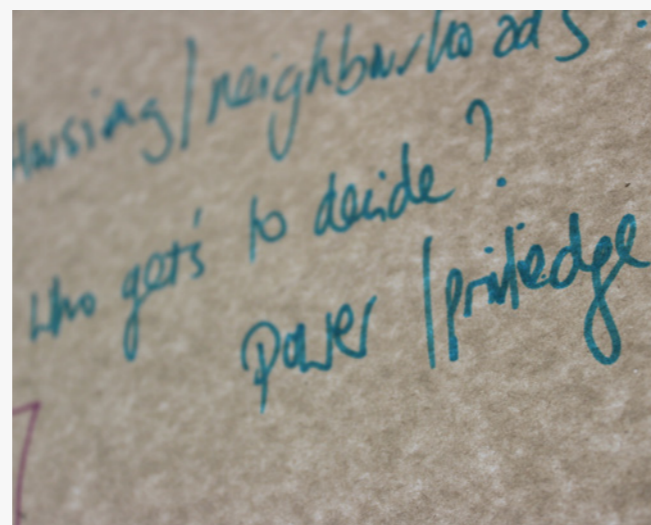 Housing/neighbourhoods?
who get's to decide?
Power/priviledge